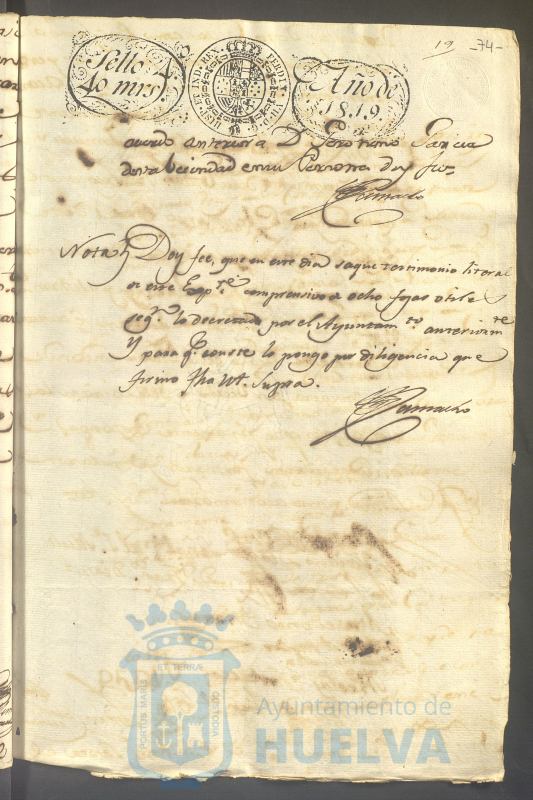 19 -74-
Sello 4º
40 mrs
HISP. ET IND. REX. FERDIN. VII. D. G.
Año de
1819.
anterior a D. Geronimo Garcia
de esta Vecindad en su Persona doy fee
Camacho
Nota Doy fee, que en este dia saque testimonio literal
de este Expte. comprensivo de ocho fojas utiles
segn. lo decretado por el Ayuntamto. anteriormte.
Y para q. conste lo pongo por diligencia que
firmo fha Ut. Supra.
Camacho
PORTUS MARIS ET TERRÆ CUSTODIA
Ayuntamiento de
HUELVA